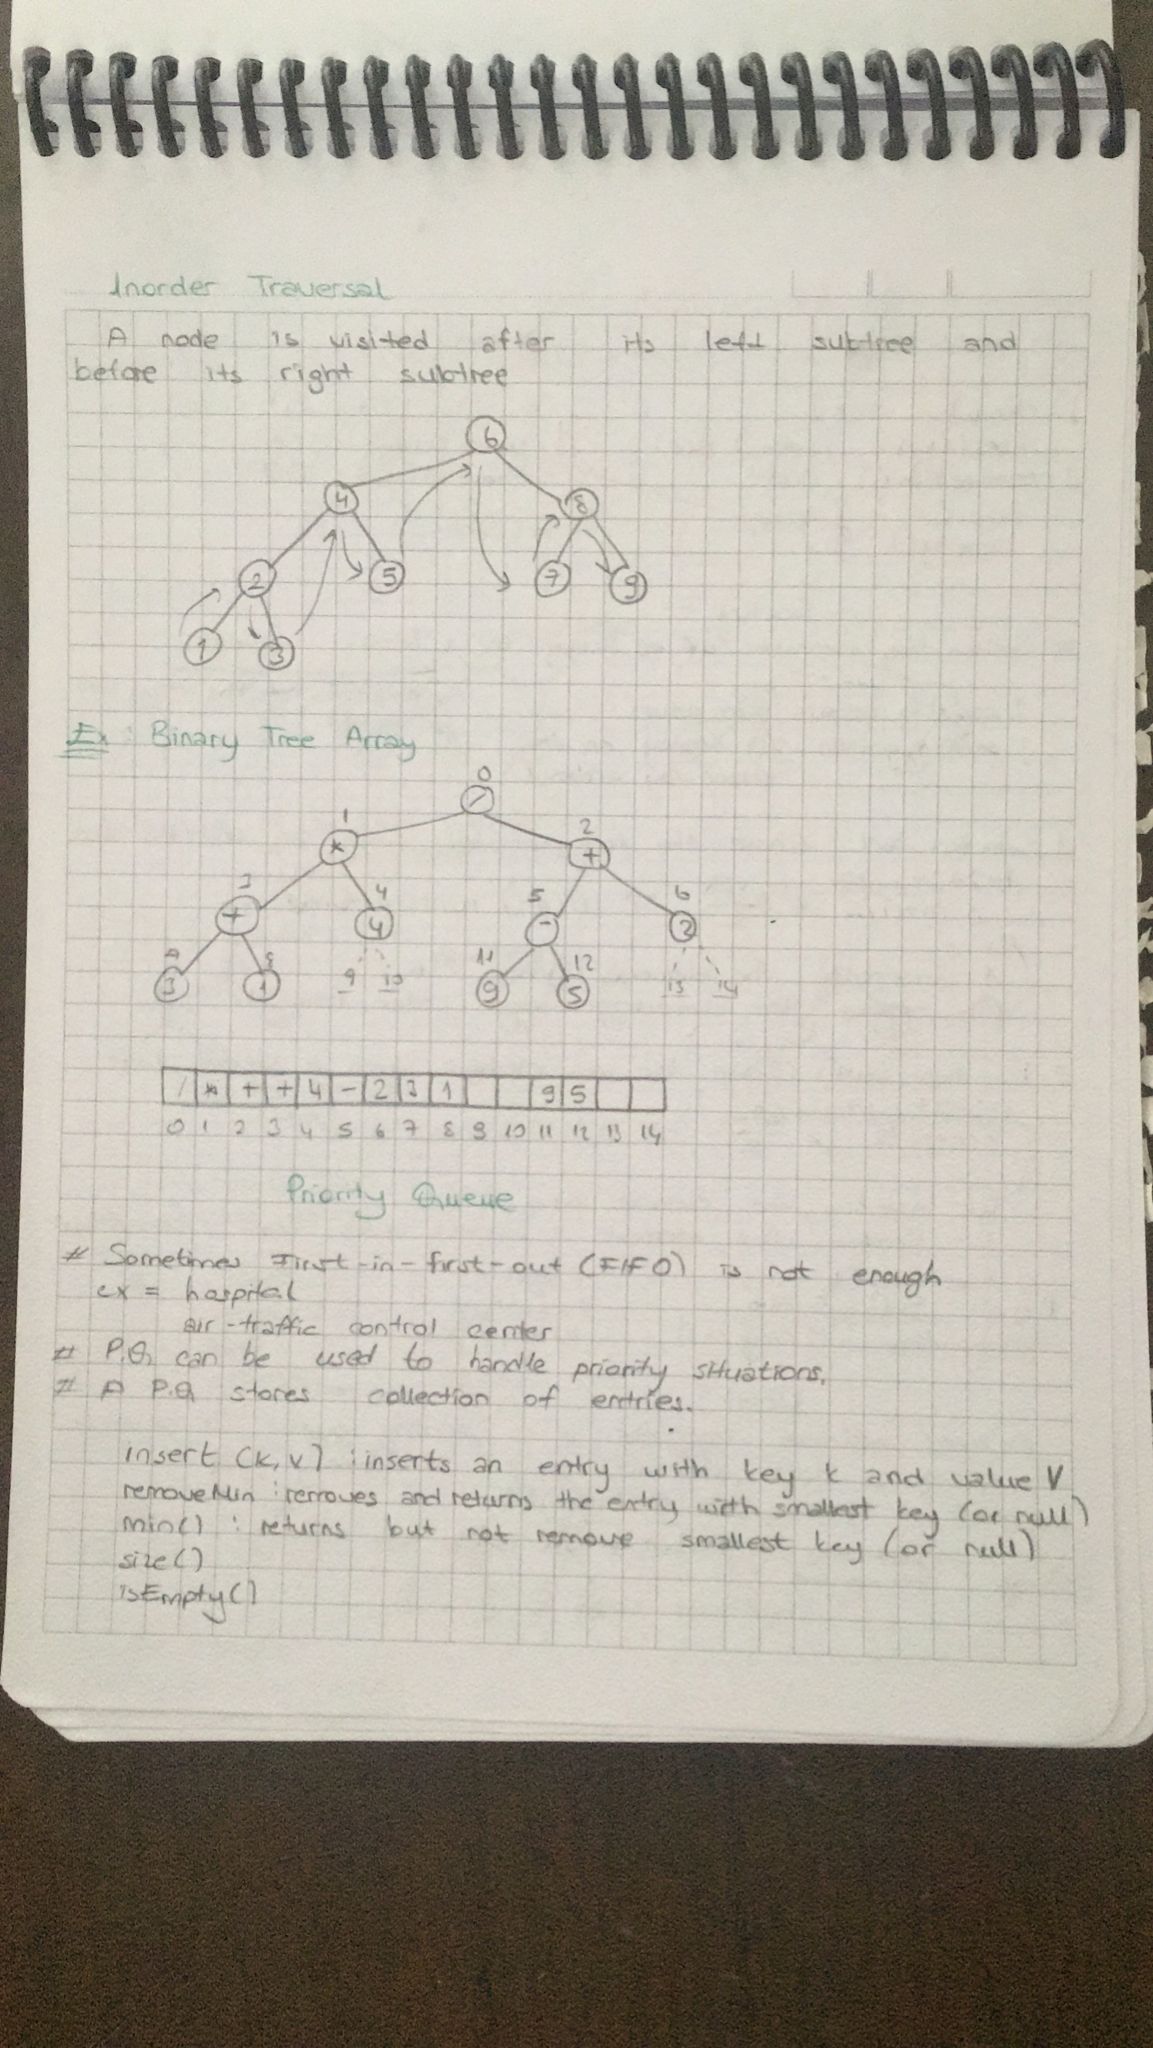 Inorder Traversal
A node is visited after its left subtree and
before its right subtree
6
4 8
2 5 7 9
1 3
Ex: Binary Tree Array
0
/
1 2
* +
3 4 5 6
+ 4 - 2
7 8 9 10 11 12 13 14
3 1 9 5
/ * + + 4 - 2 3 1 9 5
0 1 2 3 4 5 6 7 8 9 10 11 12 13 14
Priority Queue
# Sometimes First-in-first-out (FIFO) is not enough
ex = hospital
air-traffic control center
# P.Q. can be used to handle priority situations.
# A P.Q stores collection of entries.
insert (k,v) : inserts an entry with key k and value V
removeMin : removes and returns the entry with smallest key (or null)
min() : returns but not remove smallest key (or null)
size()
isEmpty()